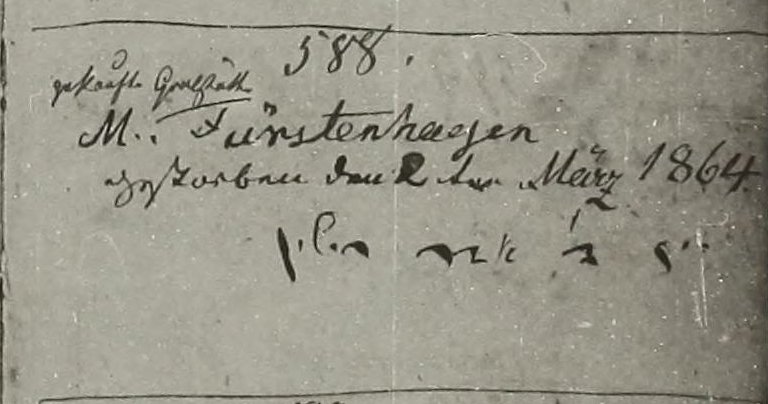 588.
gekaufte Grabstätte
M. Fürstenhagen
gestorben den 2 ten März 1864.